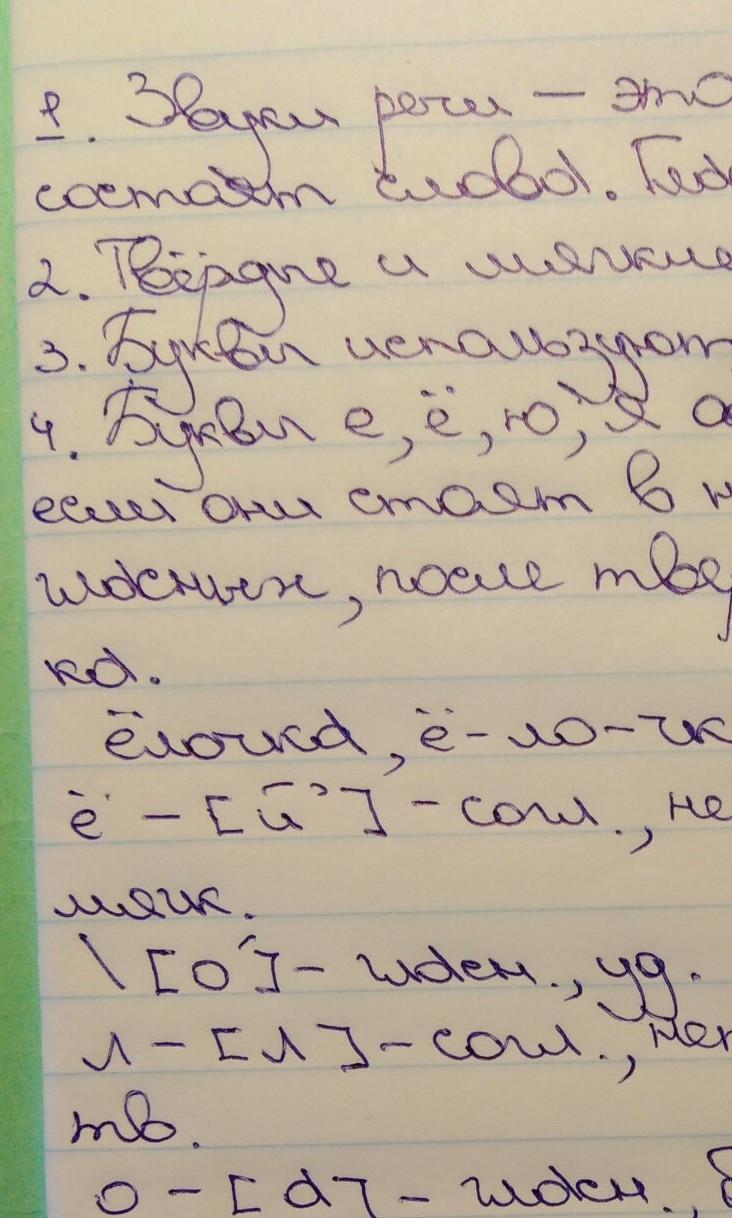 1. Звуки речи — это
состоят слова. Гла
2. Твёрдые и мягкие
3. Буквы используют
4. Буквы е, ё, ю, я о
если они стоят в н
гласных, после твер
ка.
ёлочка, ё-ло-чк
ё – [й'] – согл., не
мягк.
\ [о́] – гласн., уд.
л – [л] – согл., неп
тв.
о – [а] – гласн., б